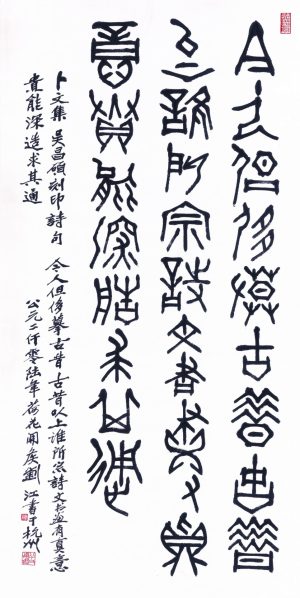 今人但侈摹古昔古昔
以上誰所宗詩文書畫有真
意貴能深造求其通
卜文集 吳昌碩刻印詩句 今人但侈摹古昔古昔以上誰所宗詩文書畫有真意
貴能深造求其通 公元二仟零陸年荷花開候劉江書于杭州